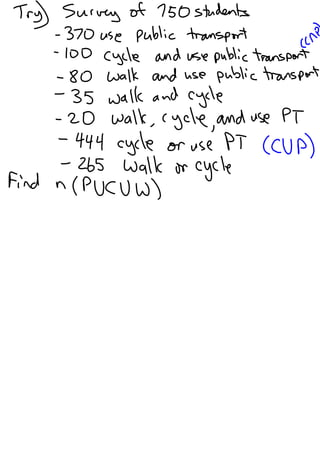 Try) Survey of 750 students
- 370 use public transport
- 100 cycle and use public transport (C∩P)
- 80 walk and use public transport
- 35 walk and cycle
- 20 walk, cycle, and use PT
- 444 cycle or use PT (C∪P)
- 265 walk or cycle
Find n(P∪C∪W)